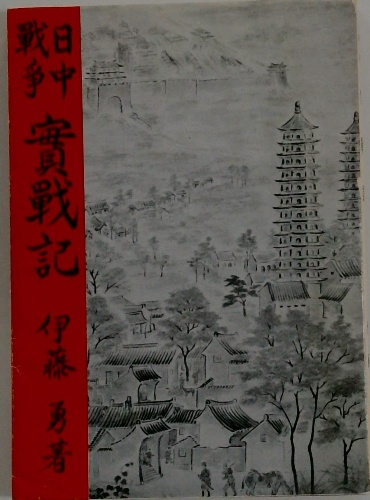 日中
戰争
實戰記
伊藤 勇著